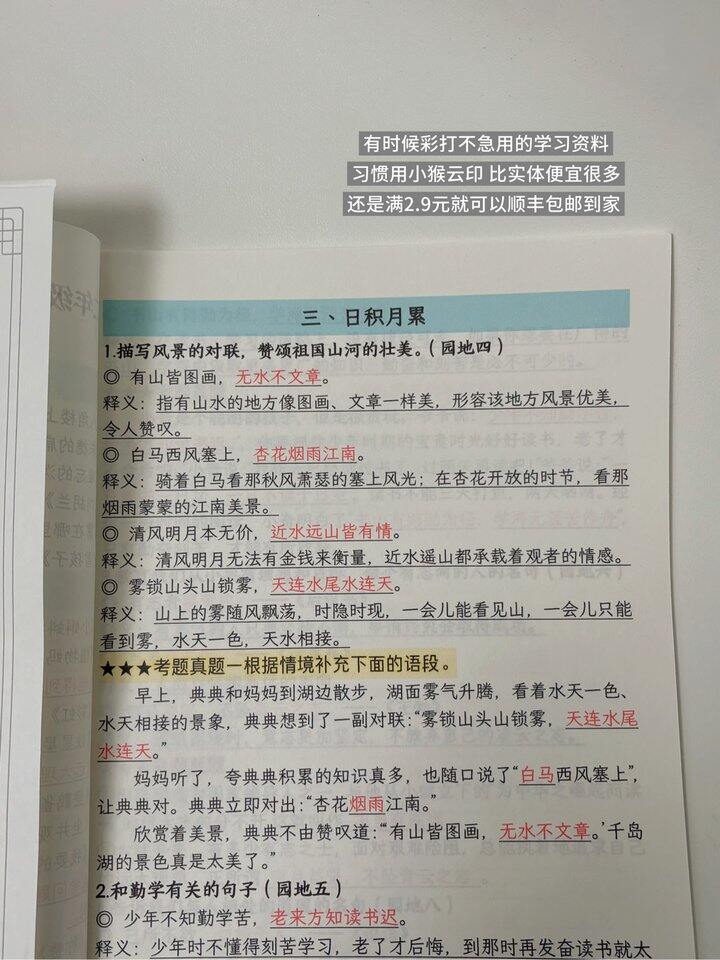 有时候彩打不急用的学习资料
习惯用小猴云印 比实体便宜很多
还是满2.9元就可以顺丰包邮到家
三、日积月累
1.描写风景的对联，赞颂祖国山河的壮美。（园地四）
◎ 有山皆图画，无水不文章。
释义：指有山水的地方像图画、文章一样美，形容该地方风景优美，
令人赞叹。
◎ 白马西风塞上，杏花烟雨江南。
释义：骑着白马看那秋风萧瑟的塞上风光；在杏花开放的时节，看那
烟雨蒙蒙的江南美景。
◎ 清风明月本无价，近水远山皆有情。
释义：清风明月无法有金钱来衡量，近水遥山都承载着观者的情感。
◎ 雾锁山头山锁雾，天连水尾水连天。
释义：山上的雾随风飘荡，时隐时现，一会儿能看见山，一会儿只能
看到雾，水天一色，天水相接。
★★★考题真题—根据情境补充下面的语段。
早上，典典和妈妈到湖边散步，湖面雾气升腾，看着水天一色、
水天相接的景象，典典想到了一副对联：“雾锁山头山锁雾，天连水尾
水连天。”
妈妈听了，夸典典积累的知识真多，也随口说了“白马西风塞上”，
让典典对。典典立即对出：“杏花烟雨江南。”
欣赏着美景，典典不由赞叹道：“‘有山皆图画，无水不文章。’千岛
湖的景色真是太美了。”
2.和勤学有关的句子（园地五）
◎ 少年不知勤学苦，老来方知读书迟。
释义：少年时不懂得刻苦学习，老了才后悔，到那时再发奋读书就太